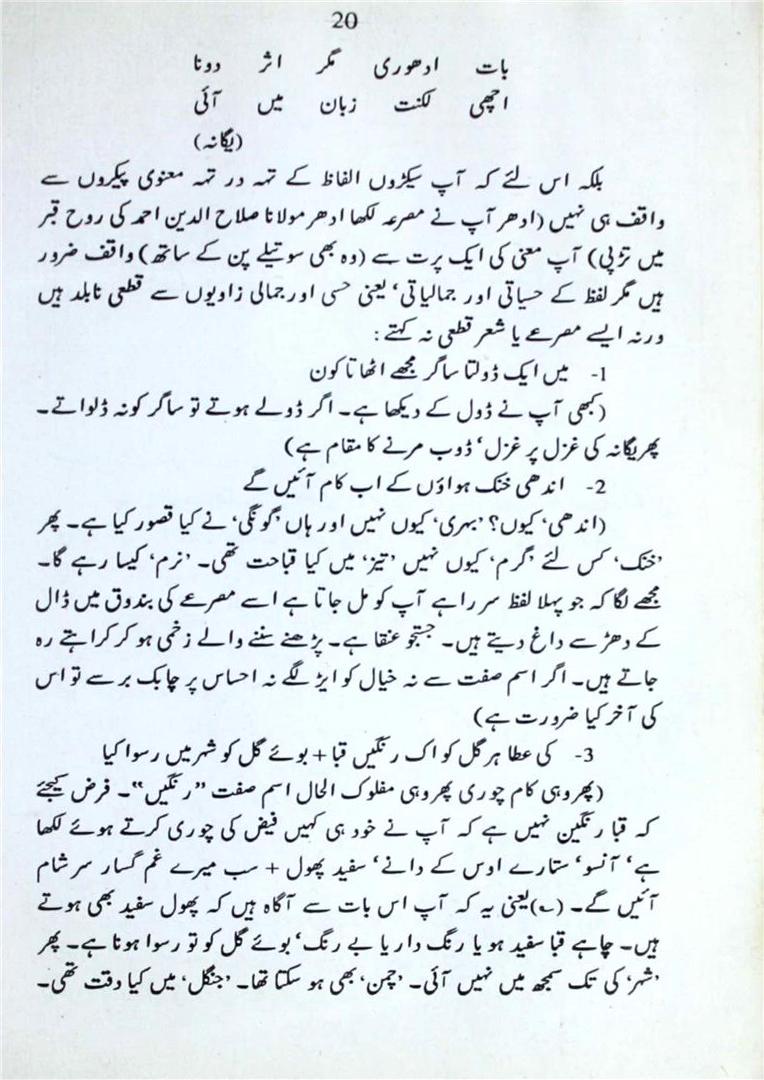 20
بات ادھوری مگر اثر دونا
اچھی لکنت زبان میں آئی
(یگانہ)
بلکہ اس لئے کہ آپ سیکڑوں الفاظ کے تہہ در تہہ معنوی پیکروں سے
واقف ہی نہیں (ادھر آپ نے مصرعہ لکھا ادھر مولانا صلاح الدین احمد کی روح قبر
میں تڑپی) آپ معنی کی ایک پرت سے (وہ بھی سوتیلے پن کے ساتھ) واقف ضرور
ہیں مگر لفظ کے حسیاتی اور جمالیاتی‘ یعنی حسی اور جمالی زاویوں سے قطعی نابلد ہیں
ورنہ ایسے مصرعے یا شعر قطعی نہ کہتے:
1- میں ایک ڈولتا ساگر مجھے اٹھاتا کون
(کبھی آپ نے ڈول کے دیکھا ہے۔ اگر ڈولے ہوتے تو ساگر کو نہ ڈلواتے۔
پھر یگانہ کی غزل پر غزل‘ ڈوب مرنے کا مقام ہے)
2- اندھی خنک ہواؤں کے اب کام آئیں گے
(اندھی‘ کیوں؟ ’بہری‘ کیوں نہیں اور ہاں ’گونگی‘ نے کیا قصور کیا ہے۔ پھر
’خنک‘ کس لئے ’گرم‘ کیوں نہیں ’تیز‘ میں کیا قباحت تھی۔ ’نرم‘ کیسا رہے گا۔
مجھے لگا کہ جو پہلا لفظ سر راہے آپ کو مل جاتا ہے اسے مصرعے کی بندوق میں ڈال
کے دھڑ سے داغ دیتے ہیں۔ جستجو عنقا ہے۔ پڑھنے سننے والے زخمی ہو کر کراہتے رہ
جاتے ہیں۔ اگر اسم صفت سے نہ خیال کو ایڑ لگے نہ احساس پر چابک برسے تو اس
کی آخر کیا ضرورت ہے)
3- کی عطا ہر گل کو اک رنگیں قبا + بوئے گل کو شہر میں رسوا کیا
(پھر وہی کام چوری پھر وہی مفلوک الحال اسم صفت ”رنگیں“۔ فرض کیجئے
کہ قبا رنگین نہیں ہے کہ آپ نے خود ہی کہیں فیض کی چوری کرتے ہوئے لکھا
ہے‘ آنسو‘ ستارے اوس کے دانے‘ سفید پھول + سب میرے غم گسار سر شام
آئیں گے۔ (؎) یعنی یہ کہ آپ اس بات سے آگاہ ہیں کہ پھول سفید بھی ہوتے
ہیں۔ چاہے قبا سفید ہو یا رنگ دار یا بے رنگ‘ بوئے گل کو تو رسوا ہونا ہے۔ پھر
’شہر‘ کی تک سمجھ میں نہیں آئی۔ ’چمن‘ بھی ہو سکتا تھا۔ ’جنگل‘ میں کیا دقت تھی۔